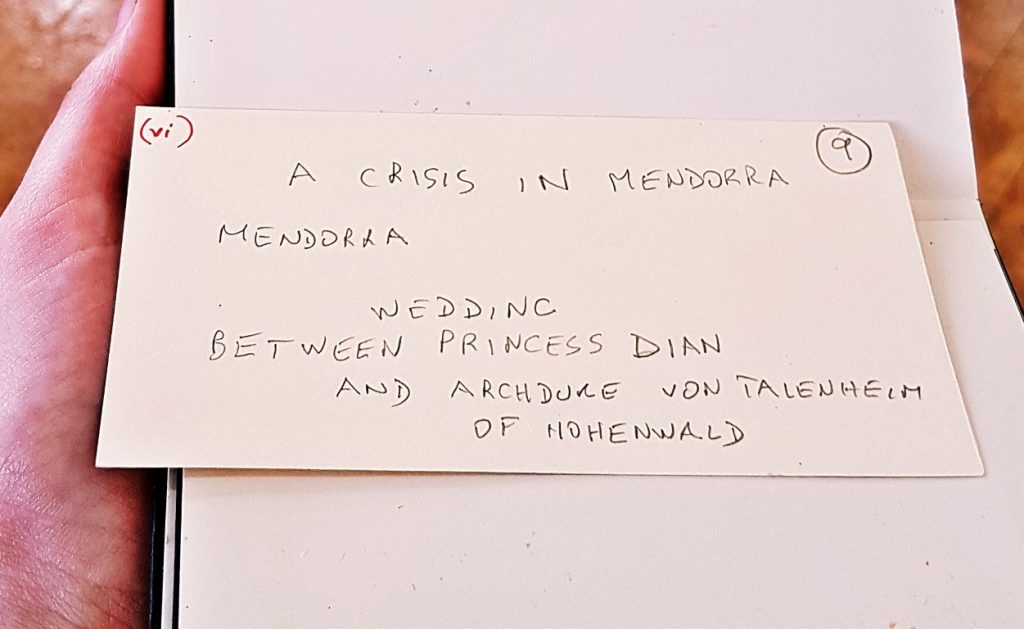 (vi)
9
A CRISIS IN MENDORRA
MENDORRA
WEDDING
BETWEEN PRINCESS DIAN
AND ARCHDUKE VON TALENHEIM
OF HOHENWALD